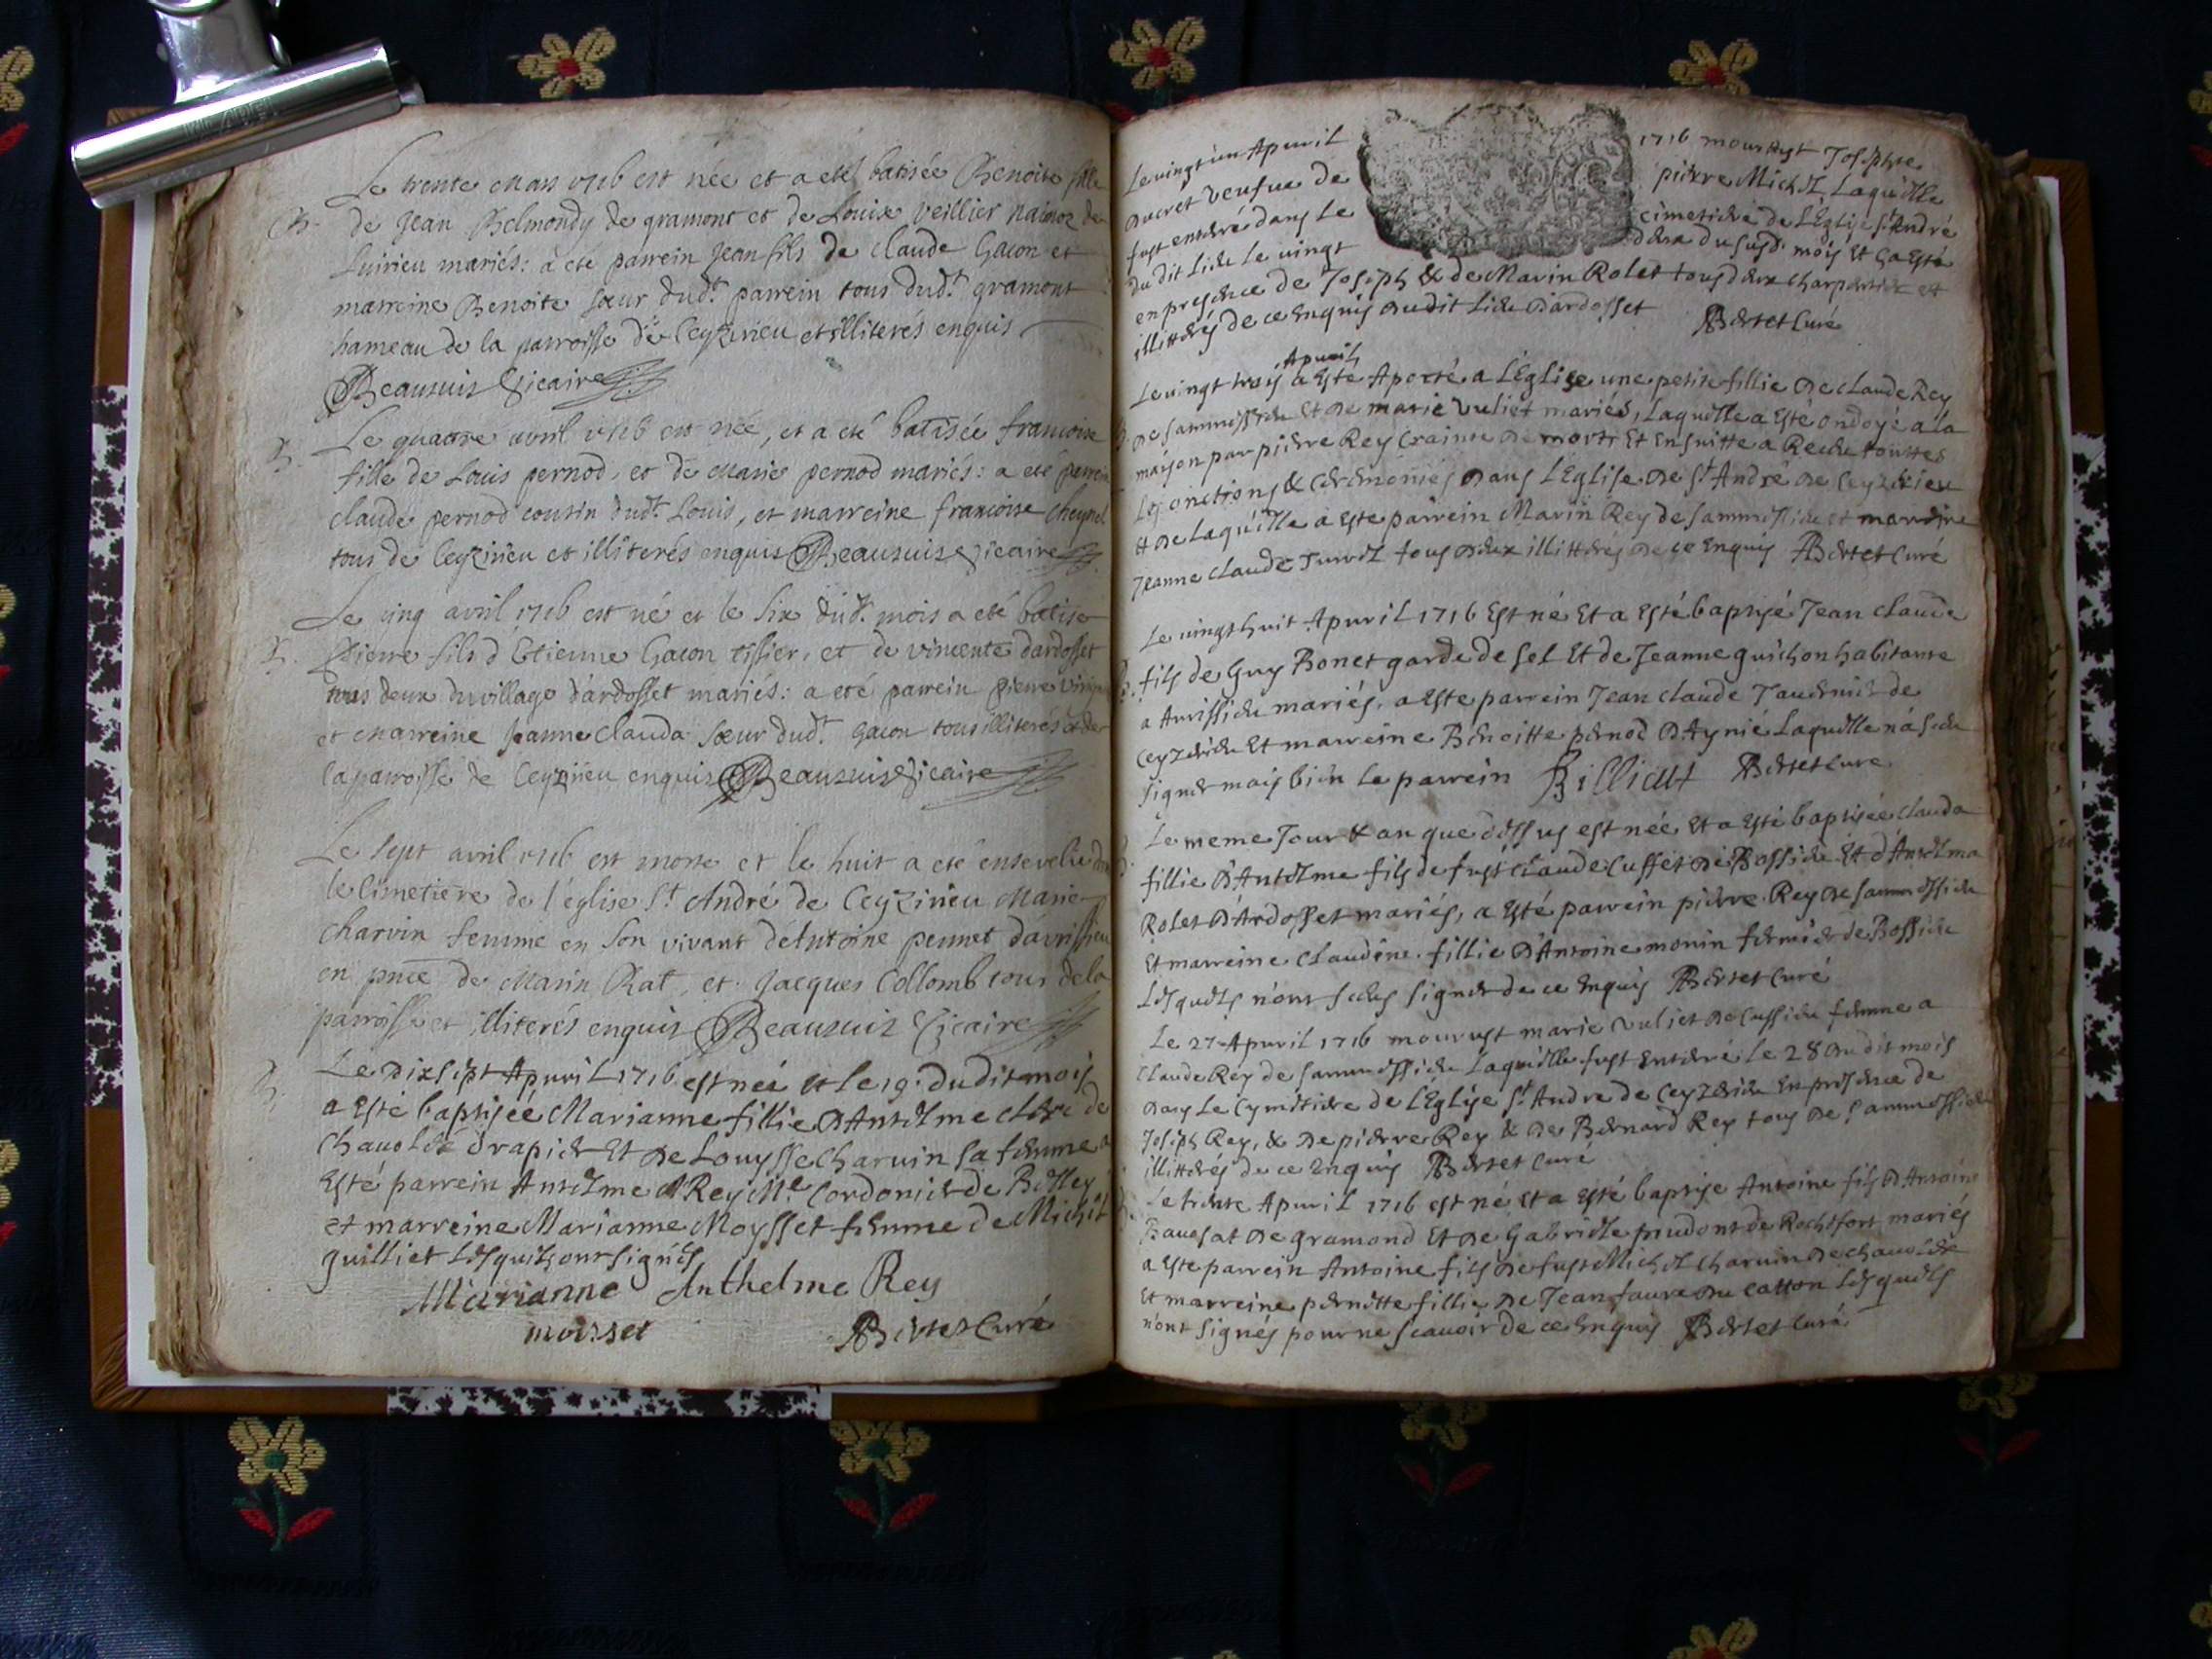 Le trente Mars 1716 est née et a eté batisée Benoite fille
B. de Jean Belmondy de gramont et de Louise veillier naimoz de
Luirieu mariés: a eté parrein Jean fils de claude Gacon et
marreine Benoite sœur dudt. parrein tous dudt. gramont
hameau de la parroisse de Ceyzirieu et illiterés enquis
Beausuis Vicaire
Le quatre avril 1716 est née, et a eté batisée francoise
B. fille de Louis pernod, et de Marie pernod mariés: a eté parrein
claude pernod cousin dudt. Louis, et marreine francoise
tous de Ceyzirieu et illiterés enquis Beausuis Vicaire
Le cinq avril 1716 est né et le six dudt. mois a eté batisé
B. Pierre fils d'Etienne Gacon tissier, et de vincente dardosset
tous deux du village d'ardosset mariés: a eté parrein pierre
et Marreine Jeanne Clauda sœur dudt. Gacon tous illiterés et de
la parroisse de Ceyzirieu enquis Beausuis Vicaire
Le sept avril 1716 est morte et le huit a eté ensevelie dans
le Cimetiere de l'église St. André de Ceyzirieu Marie
charvin femme en son vivant d'Antoine pennet d'avrissieu
en pnce de Marin Rat, et Jacques Collomb tous de la
parroisse et illiterés enquis Beausuis Vicaire
Le dixsept Apuril 1716 est née et le 19. dudit mois
B. a Esté baptisée Marianne fillie D'Antelme clerc de
Chauolée drapier Et de Louysse Charuin sa femme a
Esté parrein Antelme Rey Me Cordonier de Bessey
et marreine Marianne Moysset femme de Michel
guilliet Lesquels ont signés
Marianne Anthelme Rey
moisset Bertet Curé
Le vingt un Apuril 1716 mourust Josephte
Ducret veufue de pierre Michel Laquelle
fust enterré dans Le cimetiere de L'Eglise St. André
du dit Lieu Le vingt deux du susd. mois Et ça Esté
en presence de Joseph & de Marin Rolet tous deux charpentier et
illitterés de ce Enquis dudit Lieu D'ardosset Bertet Curé
Apuril
Le vingt trois a Esté Aporté a L'Eglise une petite fillie de Claude Rey
de sammessieu Et de marie vuliet mariés, Laquelle a Esté ondoyé a la
maison par pierre Rey Crainte de mort Et Ensuitte a Recue touttes
Les onctions & Ceremonies dans L'Eglise de St. André de Ceyzerieu
et de Laquelle a Esté parrein Marin Rey de sammessieu et marreine
Jeanne Claude Turrel tous deux illitterés de ce Enquis Bertet Curé
Le vingt huit Apuril 1716 Est né Et a Esté baptisé Jean Claude
fils de Guy Bonet garde de sel Et de Jeanne guichon habitante
a Aurissieu mariés, a Esté parrein Jean Claude Tauernier de
Ceyzerieu Et marreine Benoitte pernod D'Aynié Laquelle n'a sceu
signer mais bien Le parrein Billiat Bertet Cure.
Le meme Jour & an que dessus est née Et a Esté baptisée Clauda
fillie D'Antelme fils de fust Claude Cusset de Bossieu Et d'Antelma
Rolet D'Ardosset mariés, a Esté parrein pierre Rey de sammessieu
Et marreine Claudine fillie D'Antoine monin fermier de Bossieu
Lesquels n'ont sceus signer de ce Enquis Bertet Curé
Le 27 Apuril 1716 mourust marie vuliet de Cussieu femme a
Claude Rey de sammessieu Laquelle fust Enterré Le 28 dudit mois
dans Le Cymetiere de L'Eglise St. Andre de Ceyzerieu En presence de
Joseph Rey, & de pierre Rey & de Bernard Rey tous de sammessieu
illitterés de ce Enquis Bertet Curé
Le trente Apuril 1716 est né Et a Esté baptise Antoine fils D'Antoine
Bauosat de gramond Et de Gabrielle prudont de Rochefort mariés
a Esté parrein Antoine fils de fust Michel Charuin de Chauolée
Et marreine pernette fillie de Jean faure du catton Lesquels
n'ont signés pour ne scauoir de ce Enquis Bertet Curé